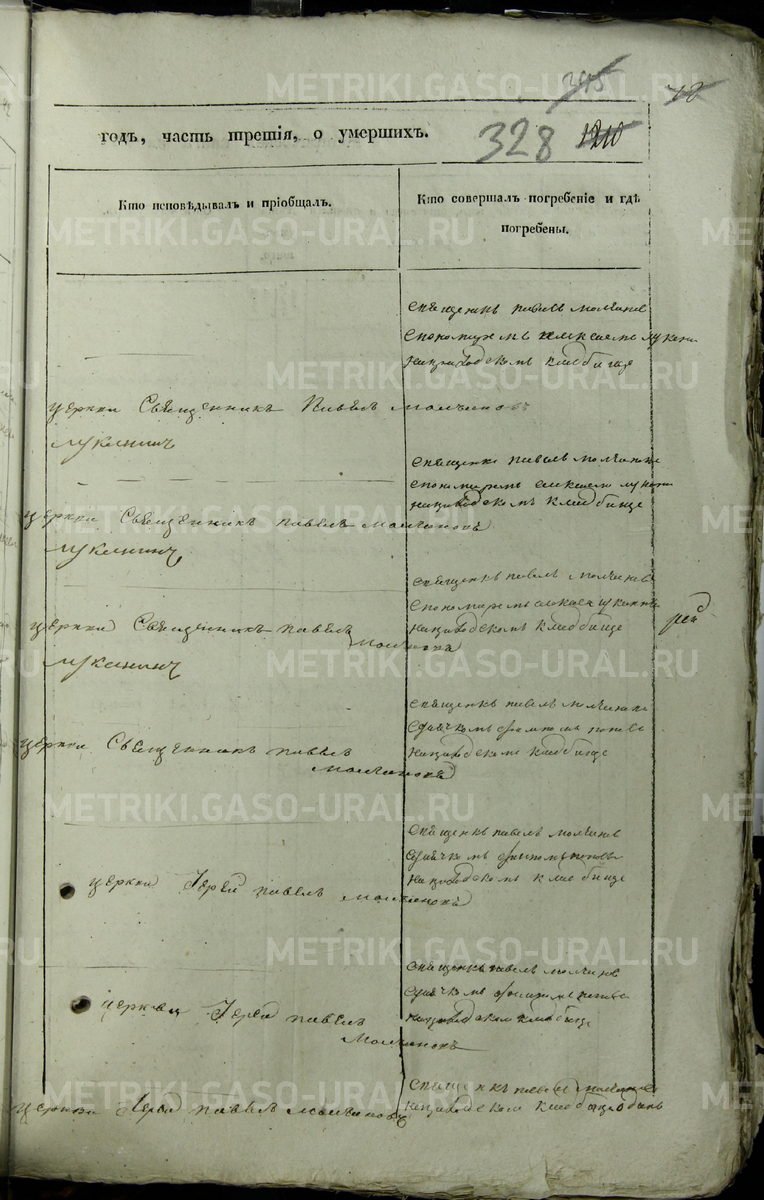 345
годъ, часть третія, о умершихъ.
328 1210
Кто исповѣдывалъ и пріобщалъ.
Кто совершалъ погребеніе и гдѣ погребены.
священикъ павелъ молчановъ
спономаремъ алексаемъ лукан
наприходскомъ кладбище
церкви Священникъ Павелъ молчановъ
луканинъ
священикъ павелъ молчановъ
спономаремъ алексаемъ лукан
наприходскомъ кладбище
церкви Священникъ павелъ молчановъ
луканинъ
священикъ павелъ молчановъ
спономаремъ
наприходскомъ кладбище
церкви Священникъ павелъ
молчановъ
луканинъ
священикъ павелъ молчановъ
сдьячкомъ поповъ
наприходскомъ кладбище
церкви Священникъ павелъ
молчановъ
священикъ павелъ молчановъ
сдьячкомъ поповъ
наприходскомъ кладбище
церкви Іерей павелъ молчановъ
священикъ павелъ молчановъ
сдьячкомъ
наприходскомъ кладбище
церкви Іерей павелъ
Молчановъ
священикъ павелъ молчановъ
наприходскомъ кладбище
церкви Іерей павелъ молчановъ
METRIKI.GASO-URAL.RU